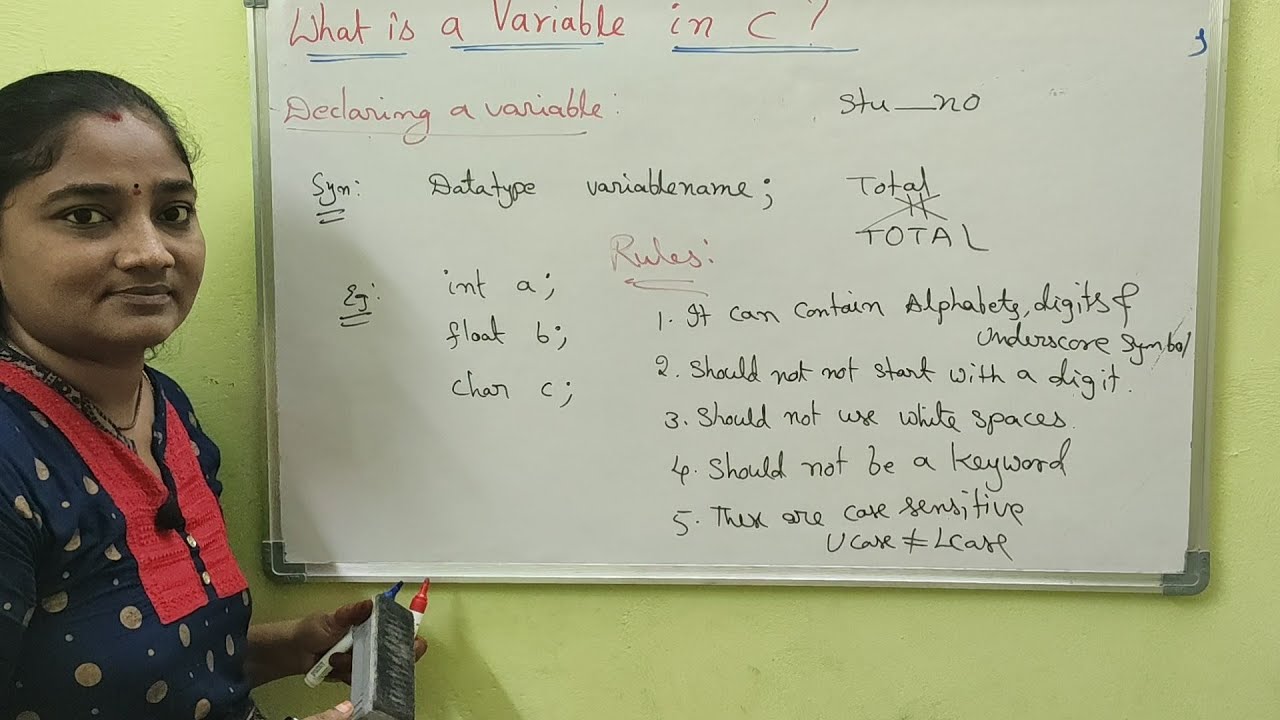 What is a Variable in C?
Declaring a variable:
Stu__no
Syn: Datatype variablename;
Total
TOTAL
Eg: int a;
float b;
char c;
Rules:
1. It can contain Alphabets, digits &
Underscore Symbol
2. Should not not start with a digit.
3. Should not use white spaces.
4. Should not be a keyword
5. are case sensitive
Ucase ≠ Lcase